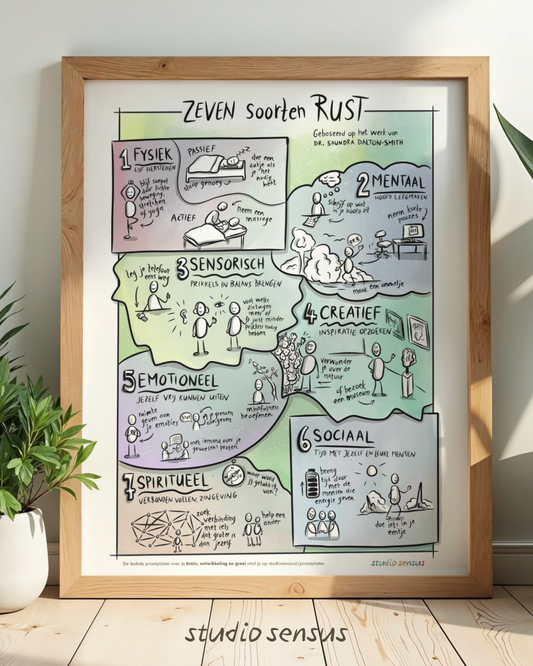 ZEVEN soorten RUST
Gebaseerd op het werk van
DR. SAUNDRA DALTON-SMITH
1 FYSIEK
LIJF HERSTELLEN
blijf soepel
door lichte
beweging,
stretchen
of yoga
PASSIEF
zzz
slaap genoeg
doe een
dutje als
je 't
nodig
hebt
ACTIEF
neem een
massage
2 MENTAAL
HOOFD LEEGMAKEN
Schrijf op wat
in je hoofd zit
neem korte
pauzes
maak een ommetje
3 SENSORISCH
PRIKKELS IN BALANS BRENGEN
Leg je telefoon
eens weg
voor welke
zintuigen
meer of
juist minder
prikkels nodig
hebben
4 CREATIEF
INSPIRATIE OPZOEKEN
verwonder
je over de
natuur
of bezoek
een museum
5 EMOTIONEEL
JEZELF VRIJ KUNNEN UITEN
ruimte
geven aan
je emoties
je grenzen
aangeven
met iemand over je
gevoelens praten
mindfulness
beoefenen
6 SOCIAAL
TIJD MET JEZELF EN LEUKE MENSEN
breng
tijd door
met de
mensen die
energie geven
doe iets in je
eentje
7 SPIRITUEEL
VERBONDEN VOELEN, ZINGEVING
waar word
jij gelukkig
van?
zoek
verbinding
met iets
dat groter is
dan jezelf
help een
ander
De leukste praatplaten over je brein, ontwikkeling en groei vind je op studiosensus.nl/praatplaten
studio sensus
studio sensus